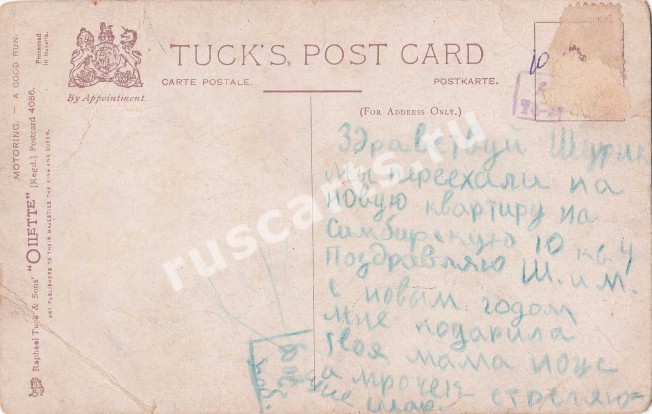 TUCK'S POST CARD
CARTE POSTALE.
POSTKARTE.
By Appointment.
(FOR ADDRESS ONLY.)
MOTORING. — A GOOD RUN.
Processed
in Bavaria.
Raphael Tuck & Sons' "OILETTE" [Regd.] Postcard 4086.
ART PUBLISHERS TO THEIR MAJESTIES THE KING AND QUEEN.
10
Здравствуй Шурик
мы переехали на
новую квартиру на
Симбирскую 10 кв 4
Поздравляю Ш. и М.
с новым годом
мне подарила
твоя мама
а
ruscarts.ru